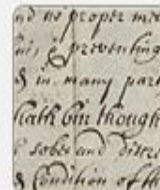 nd no proper me
preventing
& in many part
hath bin though
sober and discr
& Condition of th